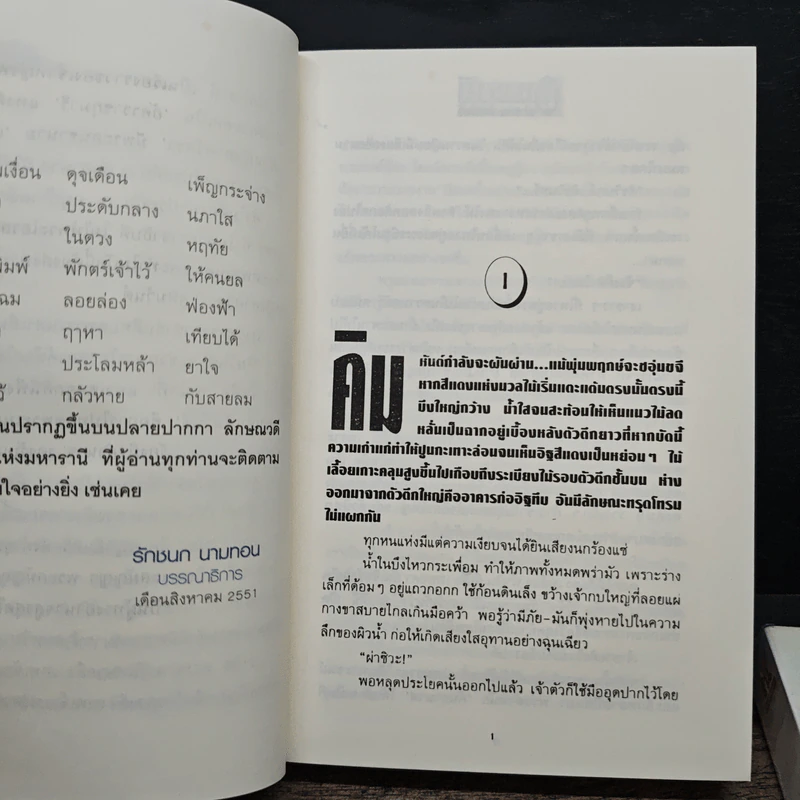 เงื่อน ดุจเดือน เพ็ญกระจ่าง
ประดับกลาง นภาใส
ในดวง หฤทัย
พิมพ์ พักตร์เจ้าไว้ ให้คนยล
ฉม ลอยล่อง ฟ่องฟ้า
ฤๅหา เทียบได้
ประโลมหล้า ยาใจ
กลัวหาย กับสายลม
นปรากฏขึ้นบนปลายปากกา ลักษณวดี
ห่งมหารานี ที่ผู้อ่านทุกท่านจะติดตาม
ใจอย่างยิ่ง เช่นเคย
รักชนก นามทอน
บรรณาธิการ
เดือนสิงหาคม 2551
1
คิมหันต์กำลังจะผันผ่าน...แม้พุ่มพฤกษ์จะชอุ่มขจี
หากสีแดงแห่งมวลไม้เริ่มแตะแต้มตรงนั้นตรงนี้
บึงใหญ่กว้าง น้ำใสจนสะท้อนให้เห็นแนวไม้ลด
หลั่นเป็นฉากอยู่เบื้องหลังตัวตึกยาวที่หากบัดนี้
ความเก่าแก่ทำให้ปูนกะเทาะล่อนจนเห็นอิฐสีแดงเป็นหย่อมๆ ไม้
เลื้อยเกาะคลุมสูงขึ้นไปเกือบถึงระเบียงไม้รอบตัวตึกชั้นบน ห่าง
ออกมาจากตัวตึกใหญ่คืออาคารก่ออิฐทึบ อันมีลักษณะทรุดโทรม
ไม่แผกกัน
ทุกหนแห่งมีแต่ความเงียบจนได้ยินเสียงนกร้องแซ่
น้ำในบึงไหวกระเพื่อม ทำให้ภาพทั้งหมดพร่ามัว เพราะร่าง
เล็กที่ด้อมๆ อยู่แถวกอกก ใช้ก้อนดินเล็ง ขว้างเจ้ากบใหญ่ที่ลอยแผ่
กางขาสบายไกลเกินมือคว้า พอรู้ว่ามีภัย-มันก็พุ่งหายไปในความ
ลึกของผิวน้ำ ก่อให้เกิดเสียงใสอุทานอย่างฉุนเฉียว
“ผ่าซิวะ!”
พอหลุดประโยคนั้นออกไปแล้ว เจ้าตัวก็ใช้มืออุดปากไว้โดย
1